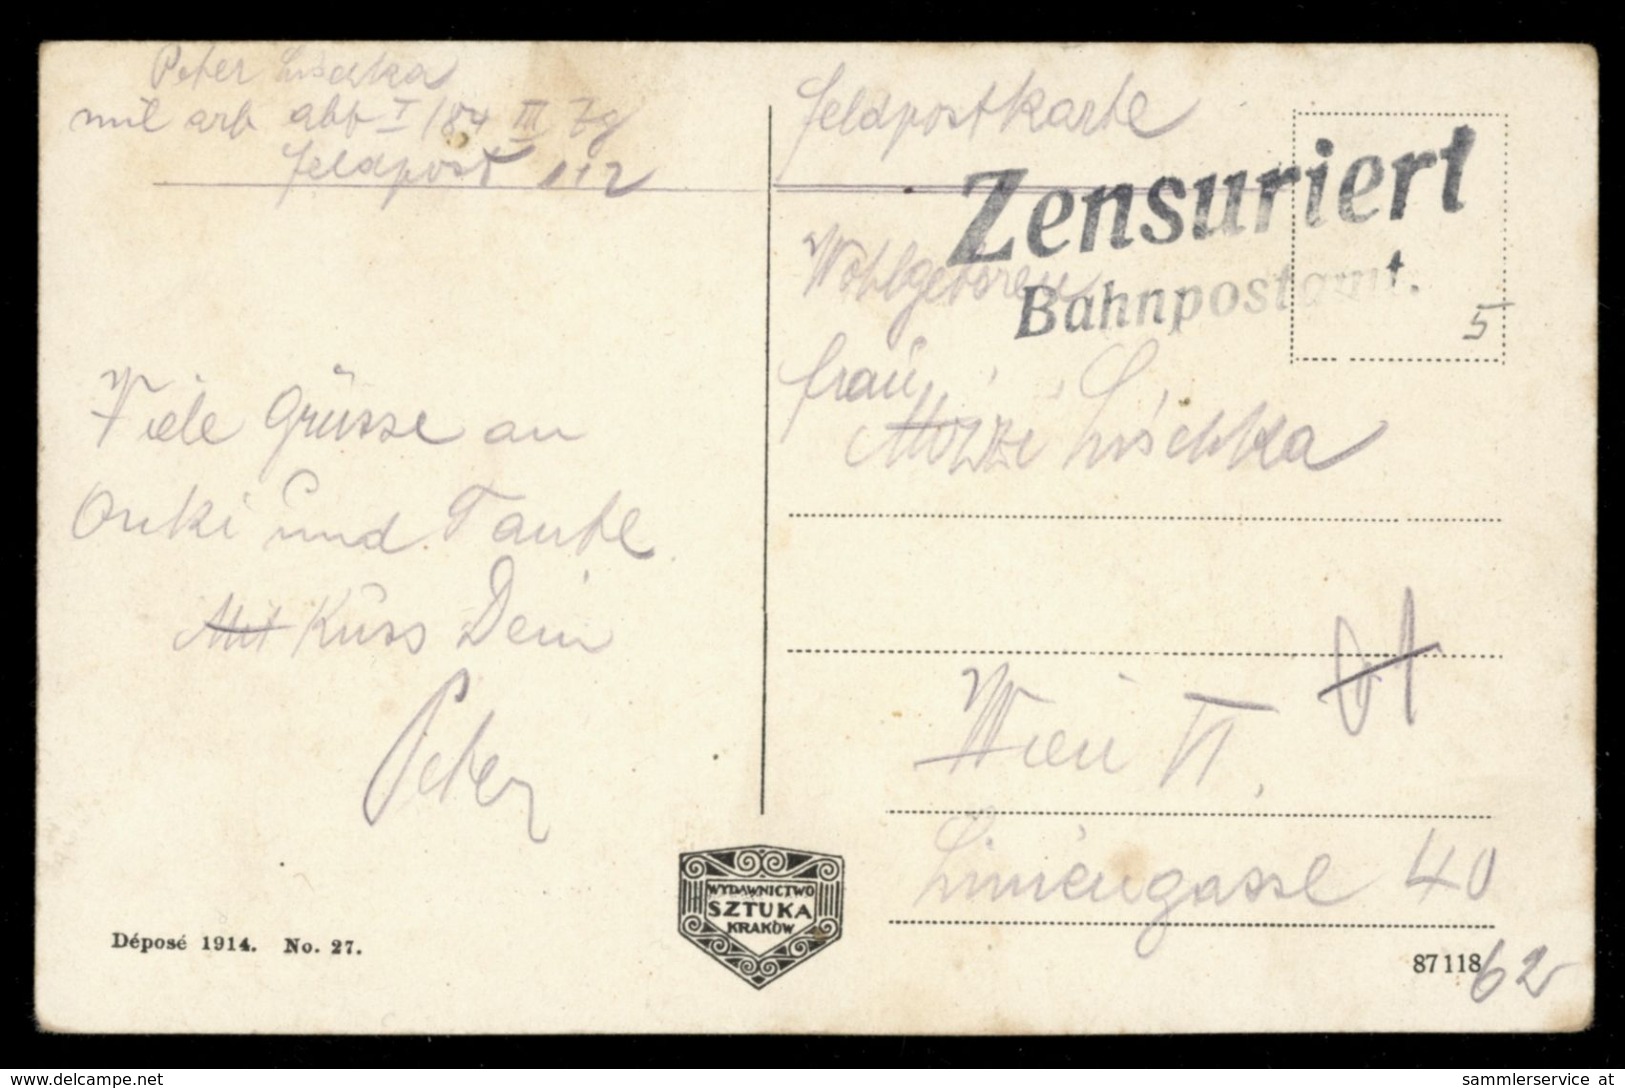 Peter Lischka
mil arb abt I/84 III Zg
Feldpost 112
Viele Grüsse an
Onki und Tante.
Mit Kuss Dein
Peter
Déposé 1914. No. 27.
WYDAWNICTWO
SZTUKA
KRAKÓW
Feldpostkarte
Zensuriert
Bahnpostamt.
5
Wohlgeboren
Frau
Mizzi Lischka
Wien VI.
Liniengasse 40
87118
62
sammlerservice at